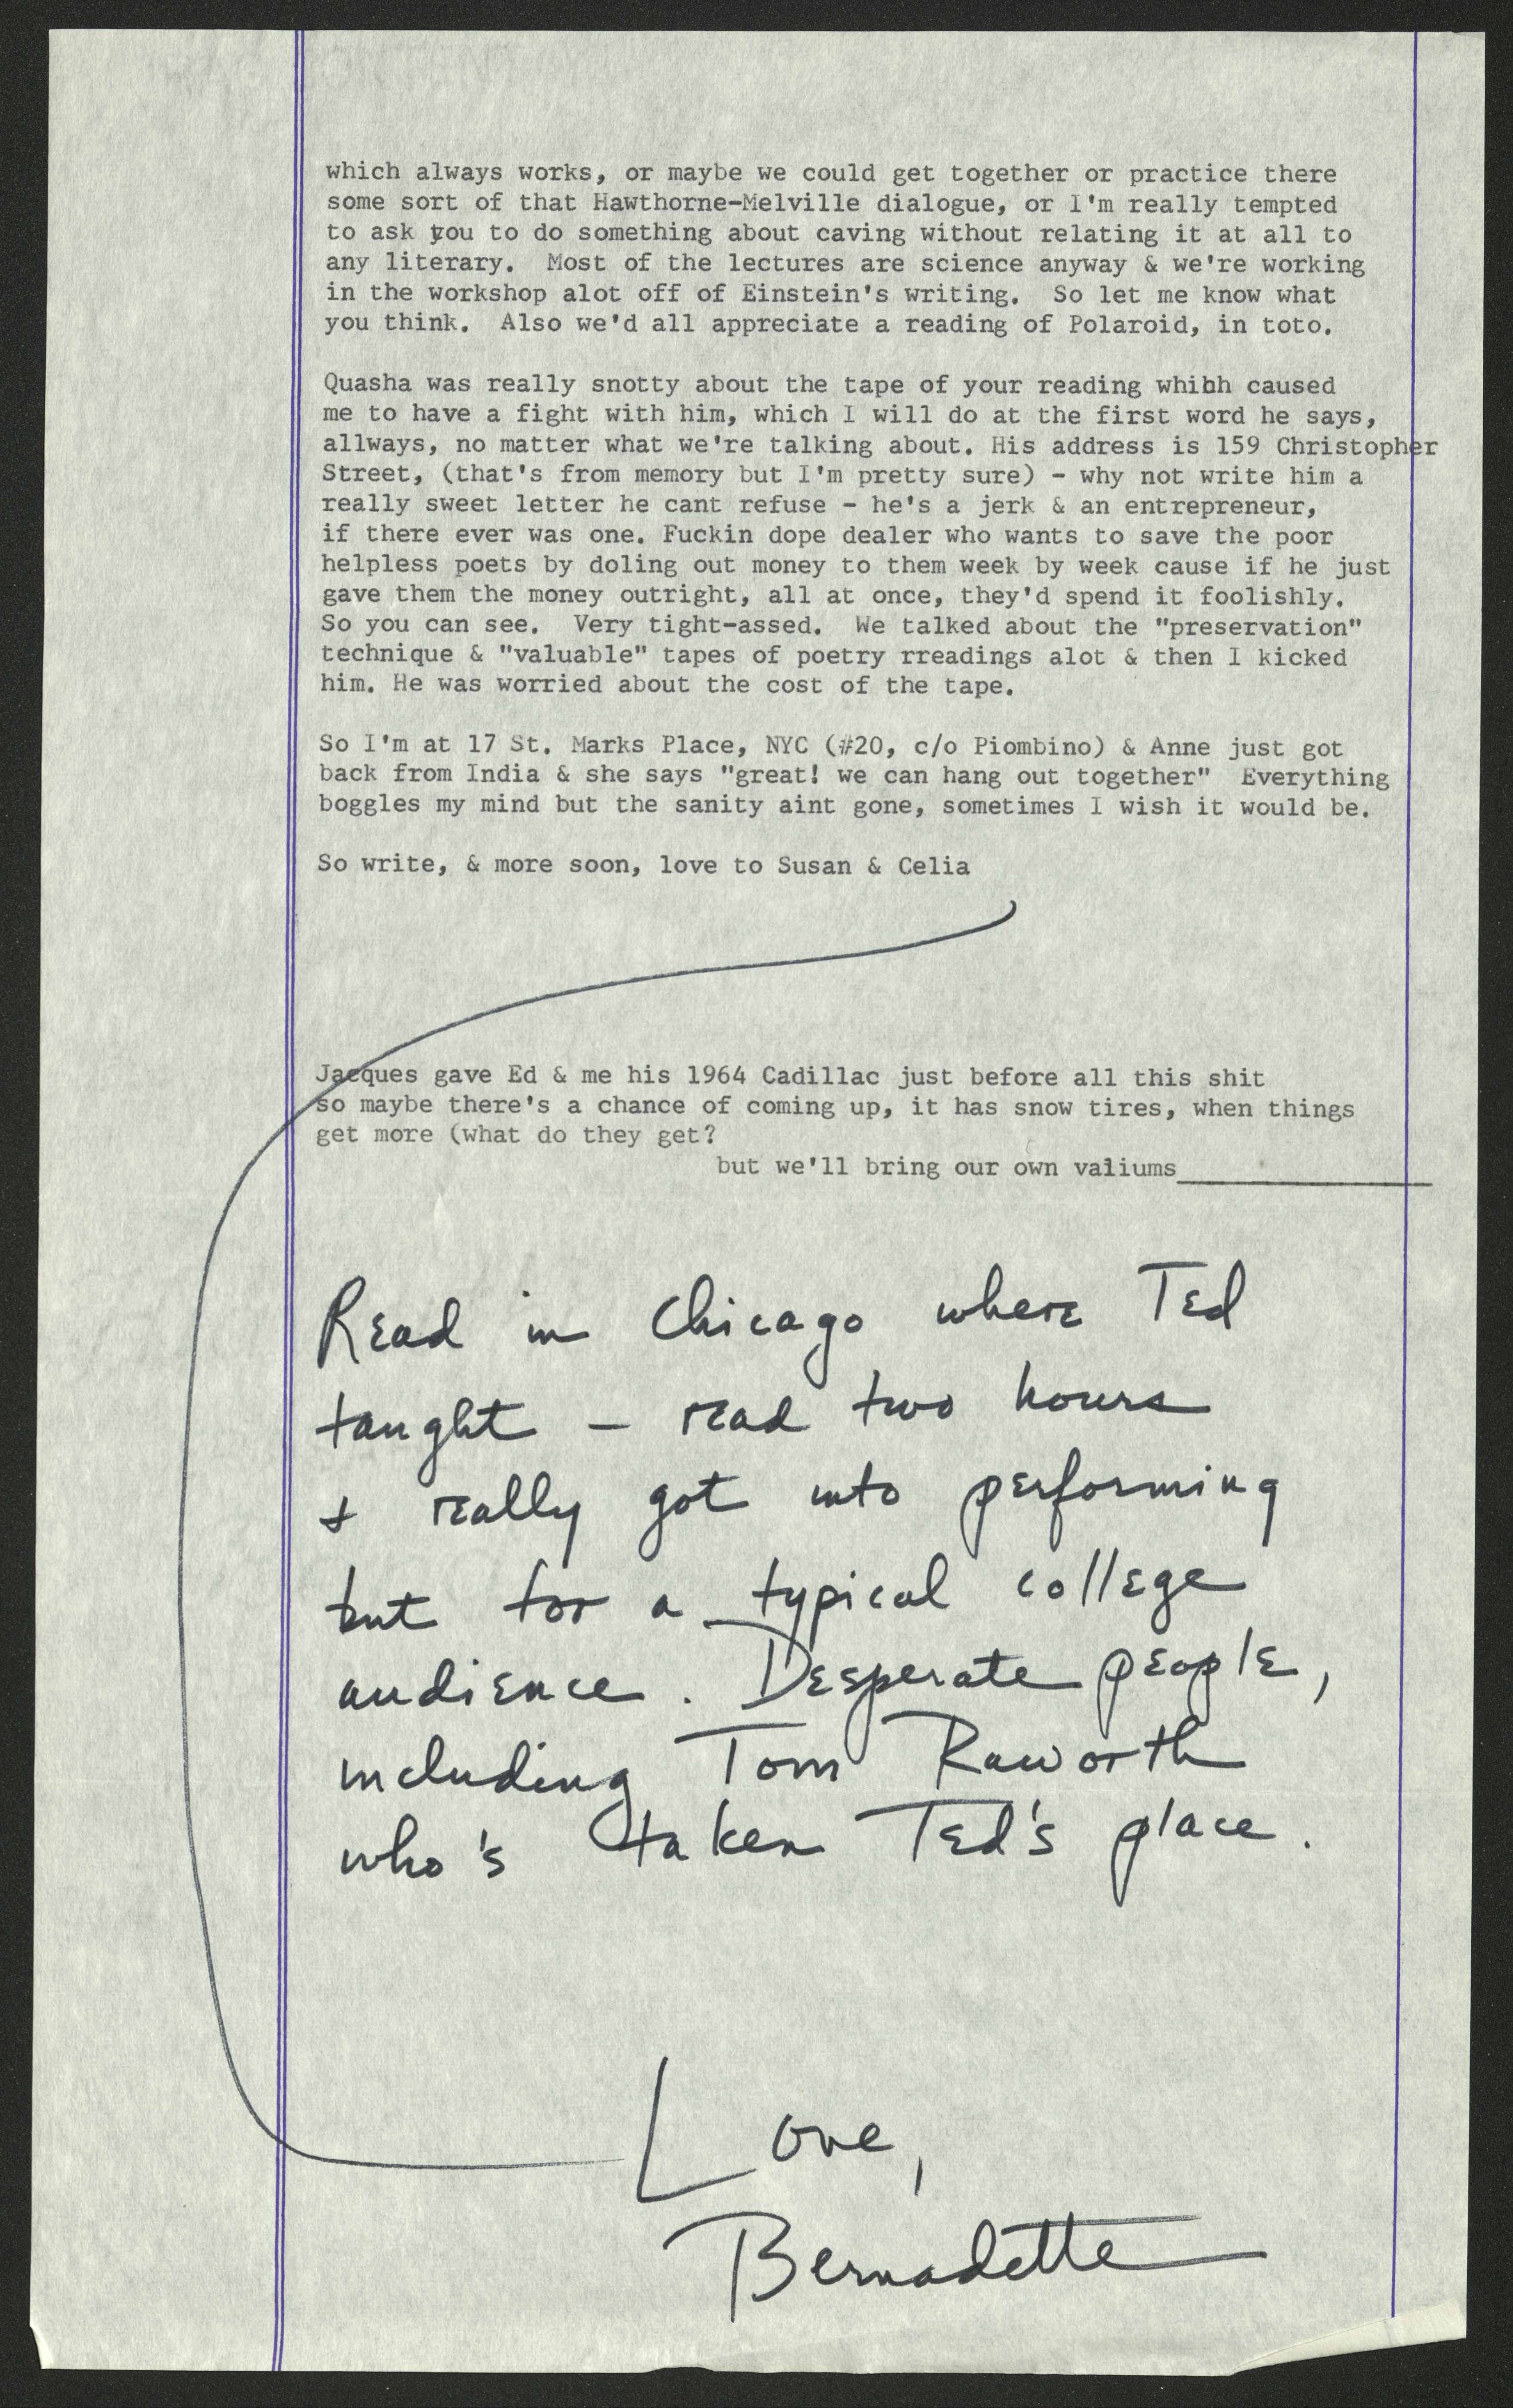 which always works, or maybe we could get together or practice there
some sort of that Hawthorne-Melville dialogue, or I'm really tempted
to ask you to do something about caving without relating it at all to
any literary.  Most of the lectures are science anyway & we're working
in the workshop alot off of Einstein's writing.  So let me know what
you think.  Also we'd all appreciate a reading of Polaroid, in toto.

Quasha was really snotty about the tape of your reading whihh caused
me to have a fight with him, which I will do at the first word he says,
allways, no matter what we're talking about. His address is 159 Christopher
Street, (that's from memory but I'm pretty sure) - why not write him a
really sweet letter he cant refuse - he's a jerk & an entrepreneur,
if there ever was one. Fuckin dope dealer who wants to save the poor
helpless poets by doling out money to them week by week cause if he just
gave them the money outright, all at once, they'd spend it foolishly.
So you can see.  Very tight-assed.  We talked about the "preservation"
technique & "valuable" tapes of poetry rreadings alot & then I kicked
him. He was worried about the cost of the tape.

So I'm at 17 St. Marks Place, NYC (#20, c/o Piombino) & Anne just got
back from India & she says "great! we can hang out together"  Everything
boggles my mind but the sanity aint gone, sometimes I wish it would be.

So write, & more soon, love to Susan & Celia

Jacques gave Ed & me his 1964 Cadillac just before all this shit
so maybe there's a chance of coming up, it has snow tires, when things
get more (what do they get?
but we'll bring our own valiums_________________

Read in Chicago where Ted
taught - read two hours
& really got into performing
but for a typical college
audience. Desperate people,
including Tom Raworth
who's taken Ted's place.

Love,
Bernadette